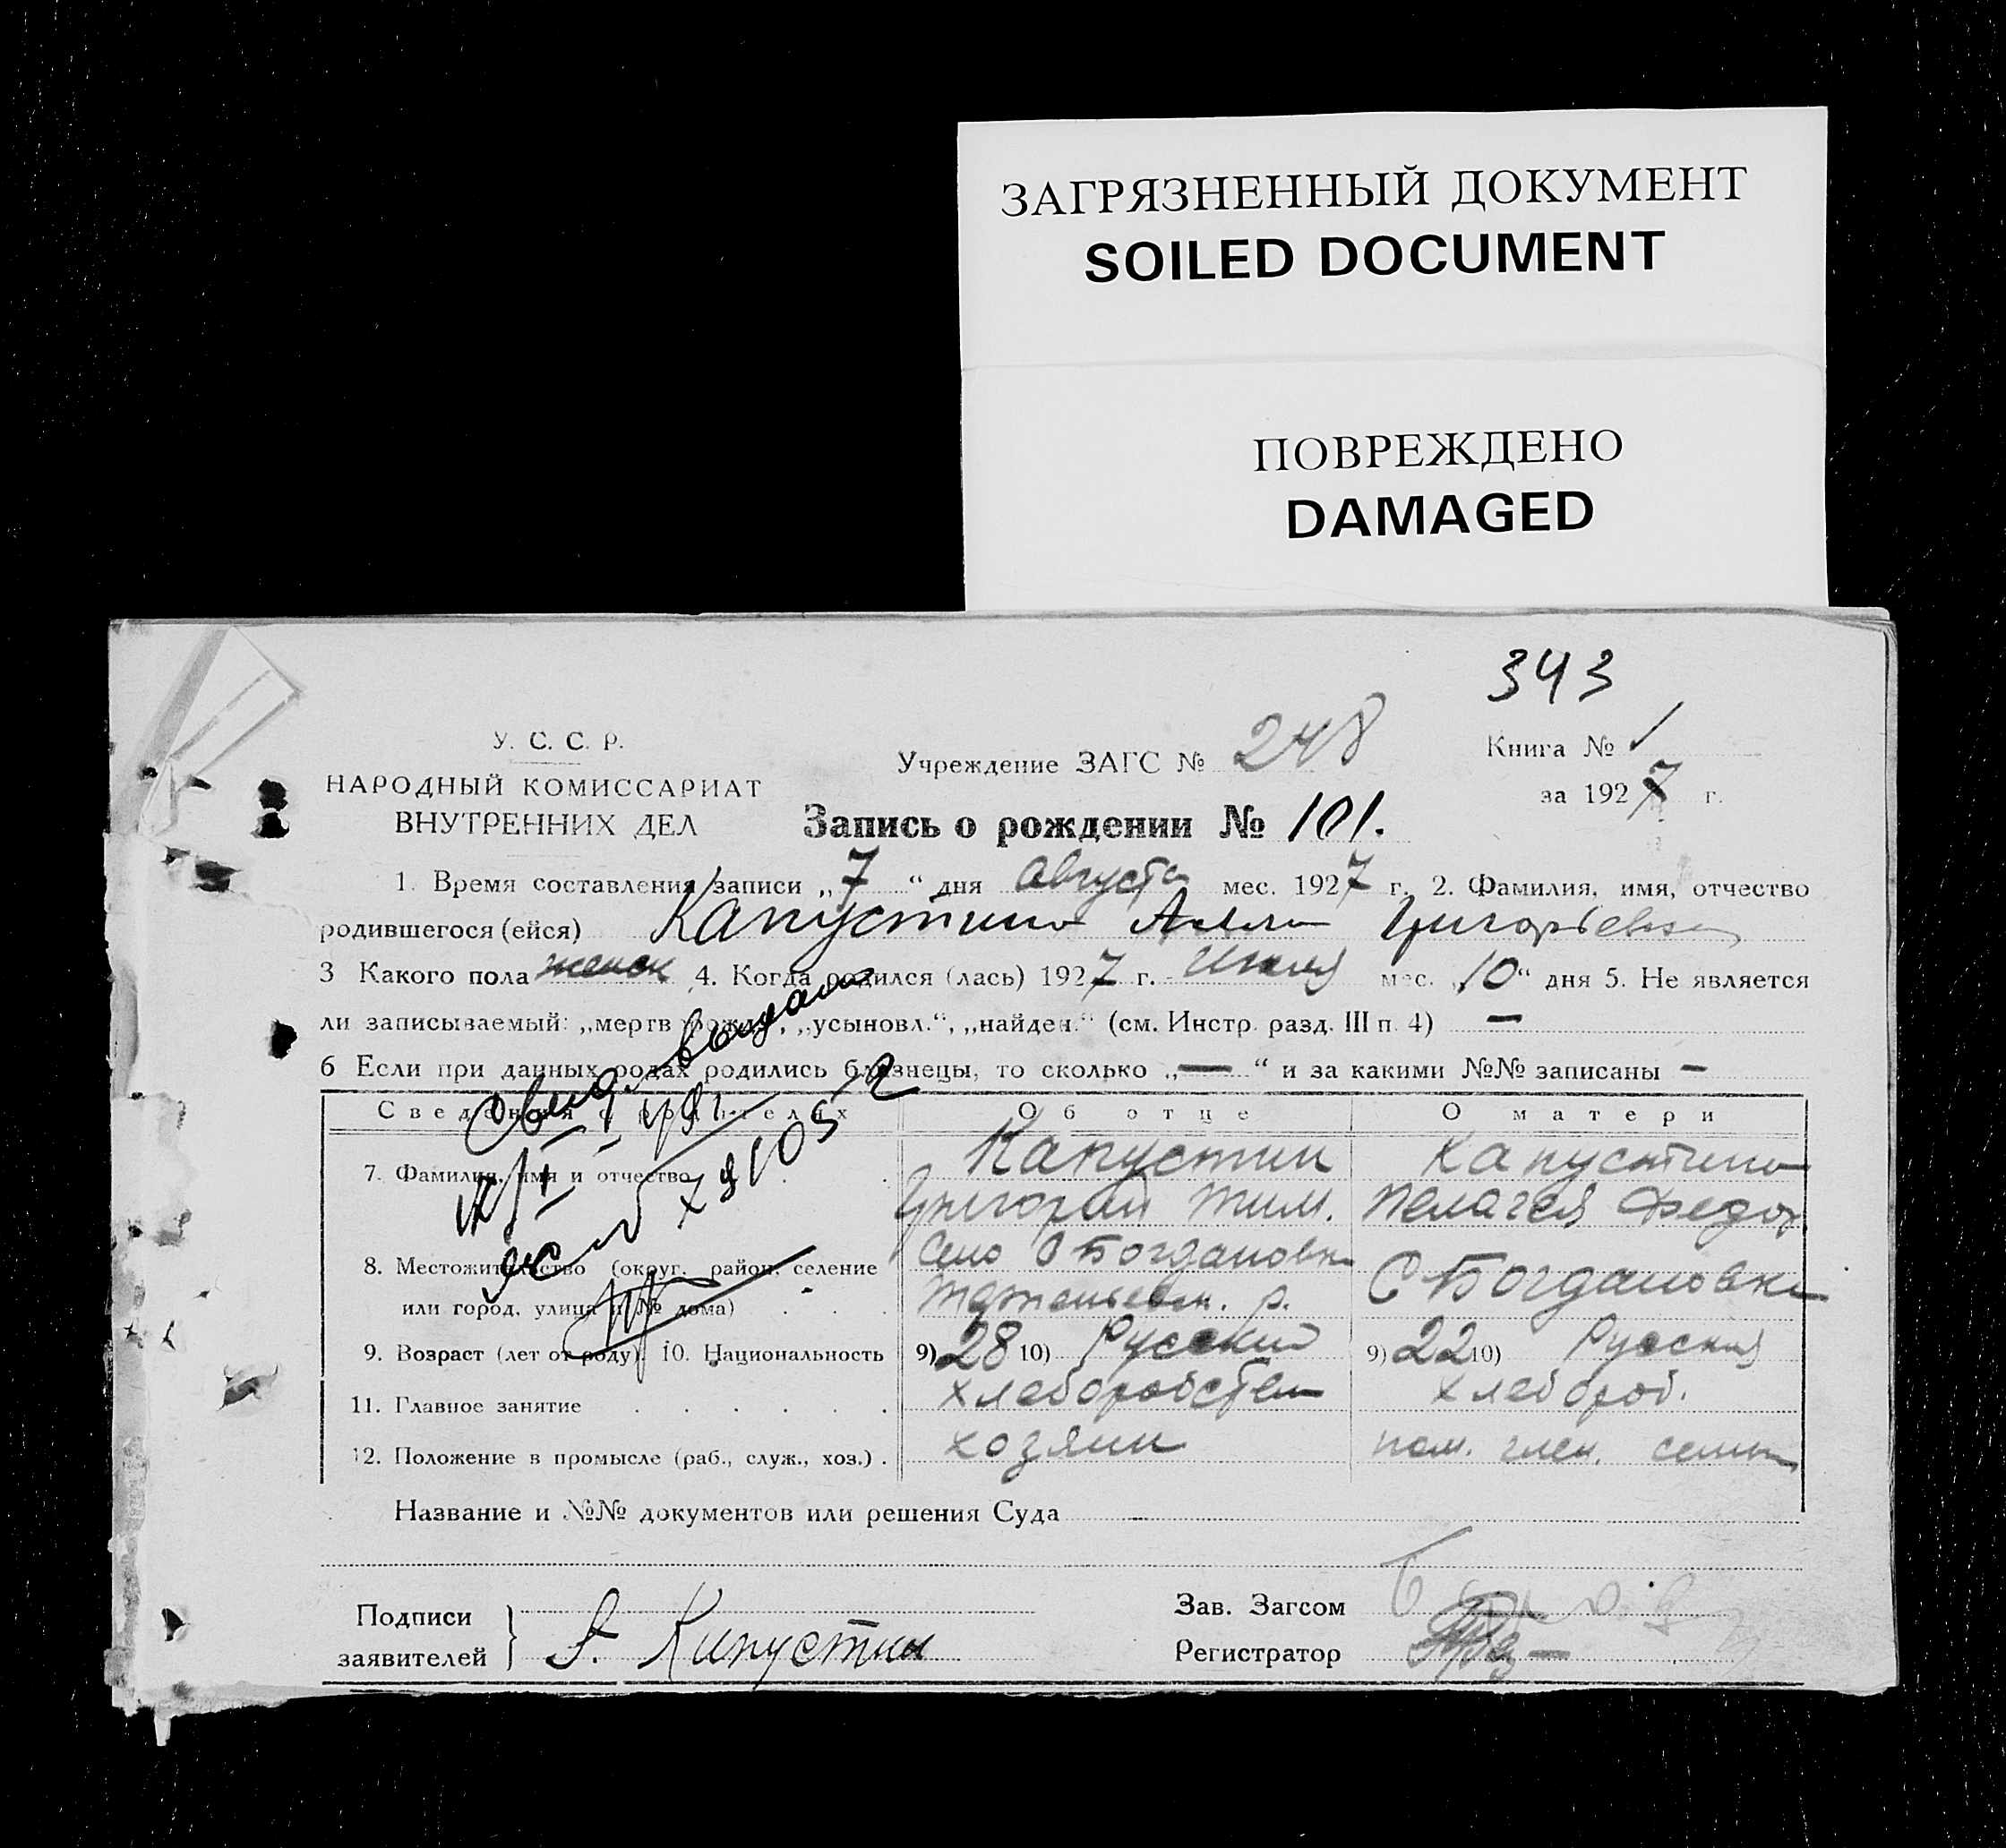 ЗАГРЯЗНЕННЫЙ ДОКУМЕНТ
SOILED DOCUMENT
ПОВРЕЖДЕНО
DAMAGED
343
У. С. С. Р.
НАРОДНЫЙ КОМИССАРИАТ
ВНУТРЕННИХ ДЕЛ
Учреждение ЗАГС № 248
Книга № 1
за 1927 г.
Запись о рождении № 101.
1. Время составления записи „7“ дня Августа мес. 1927 г. 2. Фамилия, имя, отчество
родившегося (ейся) Капустина Григорьевна
3 Какого пола женск 4. Когда родился (лась) 1927 г. мес. „10“ дня 5. Не является
ли записываемый: „мертв рожд.“, „усыновл.“, „найден.“ (см. Инстр. разд. III п. 4) —
6 Если при данных родах родились близнецы, то сколько „—“ и за какими №№ записаны —
Свид. выдано
Сведения о родителях Об отце О матери
7. Фамилия, имя и отчество Капустин Капустина
Григорий Тим. Пелагея Федор
8. Местожительство (округ, район, селение Село Богдановка С Богдановка
или город, улица и № дома) р.
9. Возраст (лет от роду). 10. Национальность 9) 28 10) Русский 9) 22 10) Русская
11. Главное занятие хлеборобство хлебороб.
12. Положение в промысле (раб., служ., хоз.) хозяин пом. член. семьи
Название и №№ документов или решения Суда —
Подписи
заявителей Капустин
Зав. Загсом
Регистратор